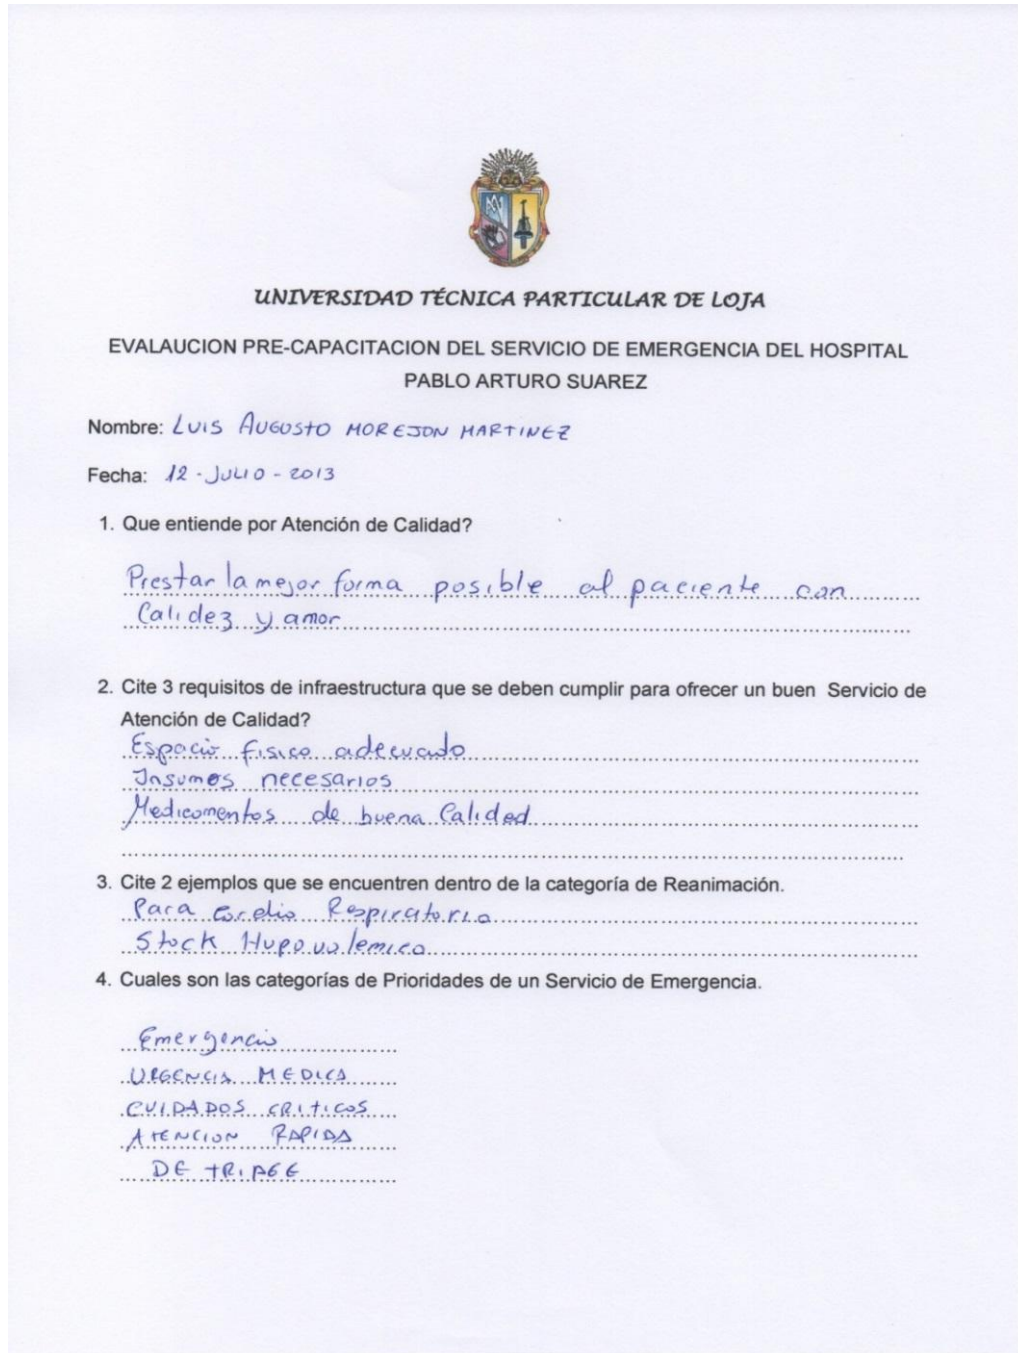 UNIVERSIDAD TÉCNICA PARTICULAR DE LOJA
EVALAUCION PRE-CAPACITACION DEL SERVICIO DE EMERGENCIA DEL HOSPITAL
PABLO ARTURO SUAREZ
Nombre: LUIS AUGUSTO MOREJON MARTINEZ
Fecha: 12 - JULIO - 2013
1. Que entiende por Atención de Calidad?
Prestar la mejor forma posible al paciente con
Calidez y amor
2. Cite 3 requisitos de infraestructura que se deben cumplir para ofrecer un buen Servicio de
Atención de Calidad?
Espacio fisico adecuado
Insumos necesarios
Medicamentos de buena Calidad
3. Cite 2 ejemplos que se encuentren dentro de la categoría de Reanimación.
Para Cardio Respiratorio
Stock Hupovolemico
4. Cuales son las categorías de Prioridades de un Servicio de Emergencia.
Emergencia
URGENCIA MEDICA
CUIDADOS CRITICOS
ATENCION RAPIDA
DE TRIAGE